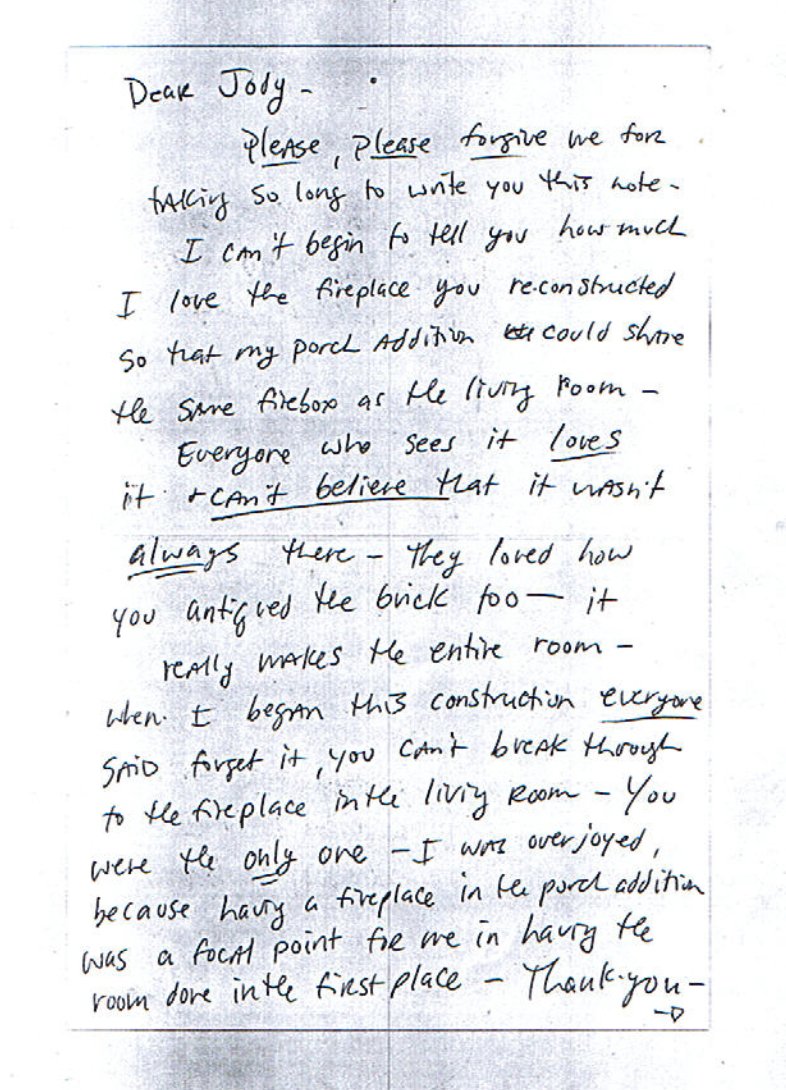 Dear Jody -
Please, Please forgive me for
taking so long to write you this note -
I can't begin to tell you how much
I love the fireplace you reconstructed
so that my porch addition could share
the same firebox as the living room -
Everyone who sees it loves
it + can't believe that it wasn't
always there - they loved how
you antiqued the brick too - it
really makes the entire room -
when I began this construction everyone
said forget it, you can't break through
to the fireplace in the living room - You
were the only one - I was overjoyed,
because having a fireplace in the porch addition
was a focal point for me in having the
room done in the first place - Thank-you -
→